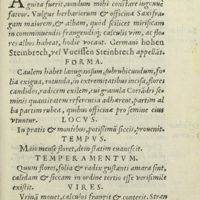 gnita fuerit, nondum mihi constare ingenuè
fateor. Vulgus herbariorum & officinæ Saxifra-
gam maiorem, & albam, quòd scilicet mirificam
in comminuendis frangendisq; calculis vim, ac flo-
res albos habeat, hodie vocant. Germani hohen
Steinbrech, vel Vueissen Steinbrech appellãt.
FORMA.
Caulem habet lanuginosum, subrubicundum, fo-
lia exigua, rotunda, in extremitatibus incisa, flores
candidos, radicem exilem, cui granula Coriãdri se-
minis quantitate referentia adhærent, partim al
ba partim rubea, quibus officinæ pro semine eius
vtuntur.
LOCVS.
In pratis & montibus, potissimũ siccis, prouenit.
TEMPVS.
Maio mense floret, dein statim euanescit.
TEMPERAMENTVM.
Quum flores, folia & radix gustanti amara sint,
calidam & siccam in ordine tertio esse verisimile
existit.
VIRES.
Vrinã mouet, calculos frangit & conterit. Stran